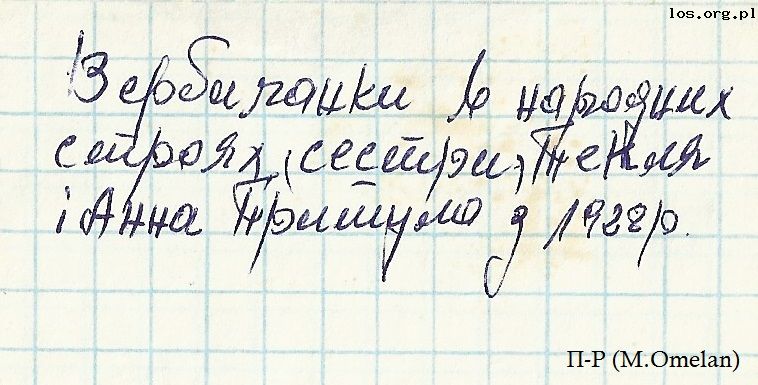 los.org.pl
Вербичанки в народних
строях, (сестри) Текля
і Анна Притула з 1928р.
П-Р (M.Omelan)